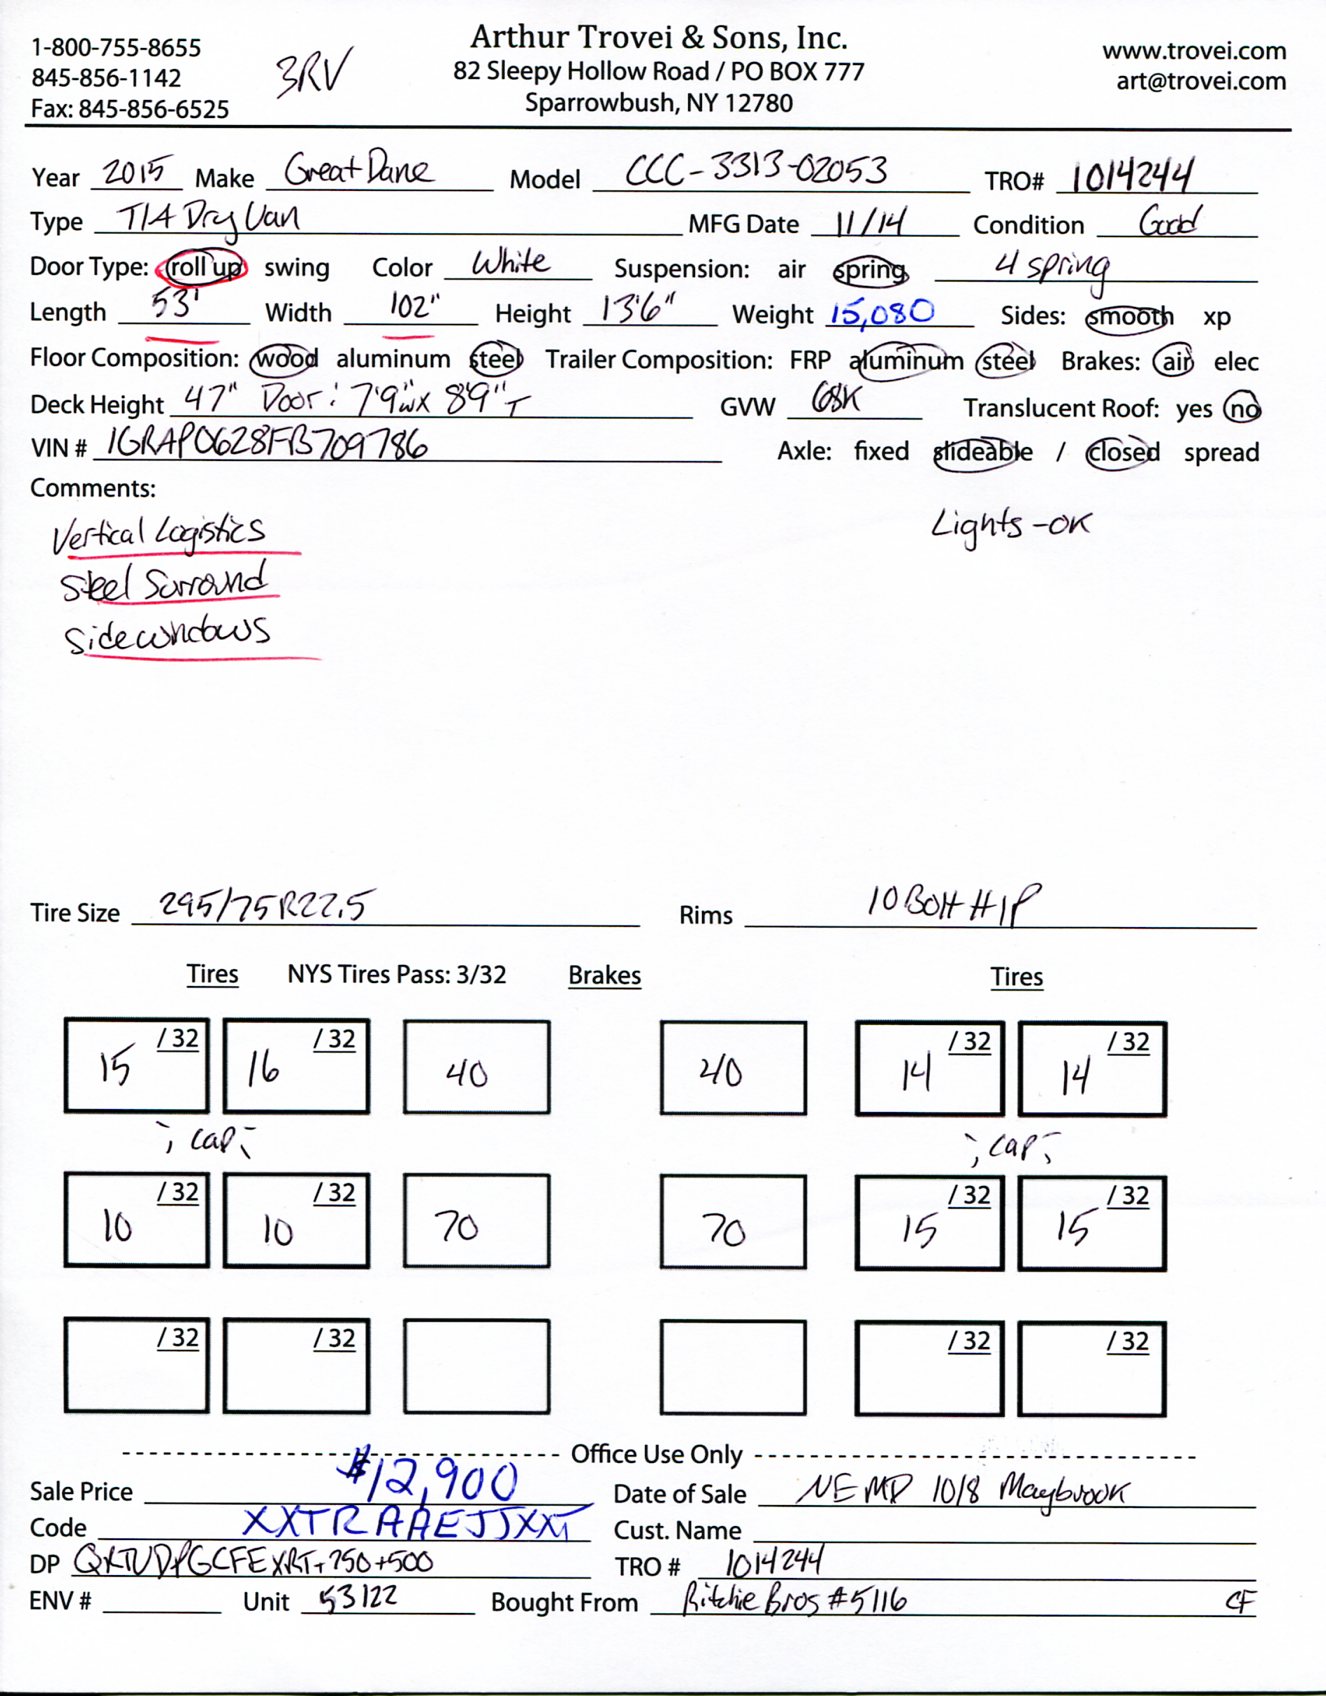 Arthur Trovei & Sons, Inc.
1-800-755-8655 82 Sleepy Hollow Road / PO BOX 777 www.trovei.com
845-856-1142 3RV Sparrowbush, NY 12780 art@trovei.com
Fax: 845-856-6525
Year 2015 Make Great Dane Model CCC-3313-02053 TRO# 1014244
Type T/A Dry Van MFG Date 11/14 Condition Good
Door Type: roll up swing Color White Suspension: air spring 4 spring
Length 53' Width 102" Height 13'6" Weight 15,080 Sides: smooth xp
Floor Composition: wood aluminum steel Trailer Composition: FRP aluminum steel Brakes: air elec
Deck Height 47" Door: 7'9"W x 8'9"T GVW 68K Translucent Roof: yes no
VIN # 1GRAP0628FB709786 Axle: fixed slideable / closed spread
Comments:
Vertical Logistics Lights-OK
Steel Surround
Sidewindows
Tire Size 295/75R22.5 Rims 10 Bolt H/P
Tires NYS Tires Pass: 3/32 Brakes Tires
15 /32 16 /32 40 40 14 /32 14 /32
; cap; ; cap;
10 /32 10 /32 70 70 15 /32 15 /32
/32 /32 /32 /32
Office Use Only
Sale Price $12,900 Date of Sale NEMD 10/8 Maybrook
Code XXTRAAEJJXXT Cust. Name
DP + 750 + 500 TRO # 1014244
ENV # Unit 53122 Bought From Ritchie Bros #5116 CF